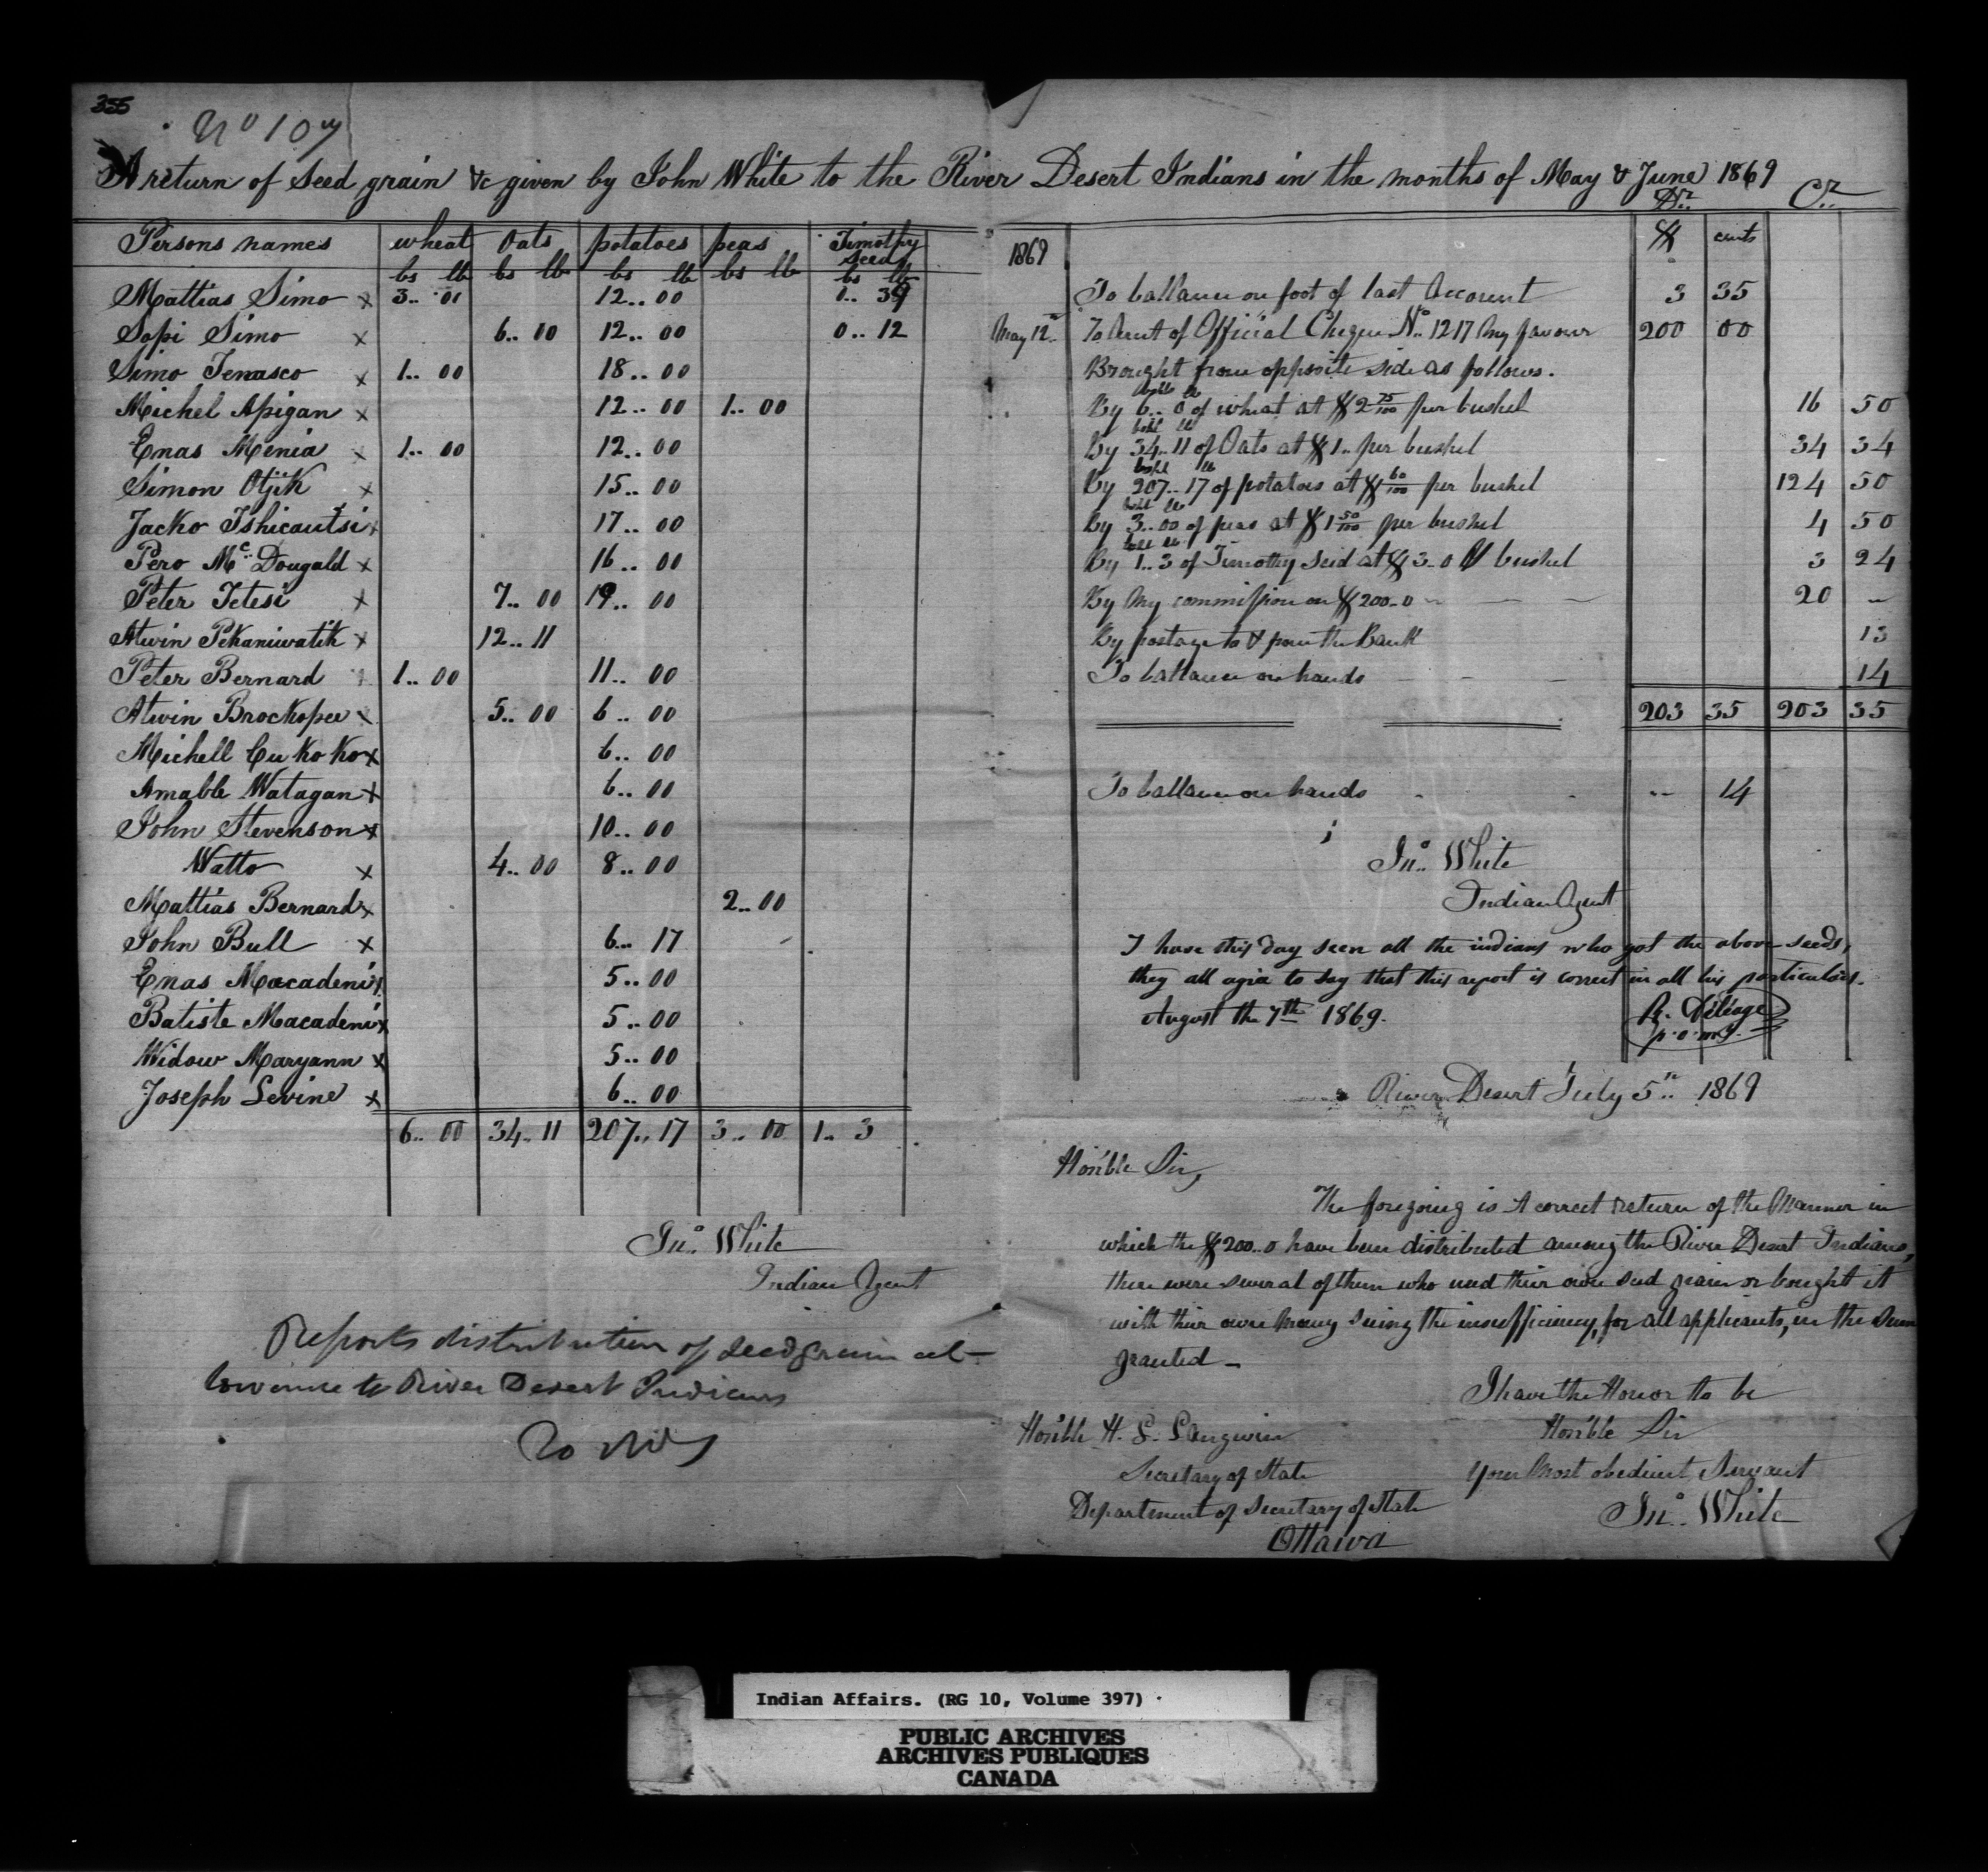 355
No 107
A return of Seed grain &c given by John White to the River Desert Indians in the months of May & June 1869
Persons names wheat Oats potatoes peas Timothy seed
bs lb bs lb bs lb bs lb bs lb
Mattias Simo x 3.. 00 12.. 00 0.. 39
Sopi Simo x 6.. 00 12.. 00 0.. 12
Simo Tenasco x 1.. 00 18.. 00
Michel Apigan x 12.. 00 1.. 00
Enas Menia x 1.. 00 12.. 00
Simon Otjik x 15.. 00
Jacko Tshicautsi x 17.. 00
Pero Mc Dougald x 16.. 00
Peter Tetesi x 7.. 00 19.. 00
Atwin Pekaniwatik x 12.. 11
Peter Bernard 1.. 00 11.. 00
Atwin Brockopee x 5.. 00 6.. 00
Michell Cu Ko Ko x 6.. 00
Amable Watagan x 6.. 00
John Stevenson x 10.. 00
Watto x 4.. 00 8.. 00
Mattias Bernard x 2.. 00
John Bull x 6.. 17
Enas Macadeni x 5.. 00
Batiste Macadeni x 5.. 00
Widow Maryann x 5.. 00
Joseph Levine x 6.. 00
6.. 00 34.. 11 207.. 17 3.. 00 1.. 3
Jno. White
Indian Agent
Reports distribution of seed grain al-
lowance to River Desert Indians
Dr. Cr.
1869 $ cents
To ballance on foot of last Account 3 35
May 12th To Amt of Official Cheque No. 1217 My favour 200 00
Brought from opposite side as follows.
bshl lb
By 6.. 0 of wheat at $2 75/100 per bushel 16 50
bshl lb
By 34.. 11 of Oats at $1.. per bushel 34 34
bshl lb
By 207.. 17 of potatoes at $ 60/100 per bushel 124 50
bshl lb
By 3.. 00 of peas at $1 50/100 per bushel 4 50
bshl lb
By 1.. 3 of Timothy seed at $3-0 bushel 3 24
By My commission on $200-0 20 -
By postage to & from the Bank 13
To ballance on hands 14
203 35 203 35
To ballance on hands -- 14
Jno. White
Indian Agent
I have this day seen all the indians who got the above seeds,
they all agree to say that this report is correct in all his particulars.
August the 7th 1869.
R. Déléage
p.o.m.j.
River Desert July 5th 1869
Hon'ble Sir,
The foregoing is A correct return of the Manner in
which the $200..0 have been distributed among the River Desert Indians,
there were several of them who used their own seed grain or bought it
with their own Money seeing the insufficiency, for all applicants, in the Sum
granted -
I have the Honor to be
Hon'ble Sir
Your Most obedient Servant
Jno. White
Hon'ble H. L. Langevin
Secretary of State
Department of Secretary of State
Ottawa
Indian Affairs. (RG 10, Volume 397)
PUBLIC ARCHIVES
ARCHIVES PUBLIQUES
CANADA